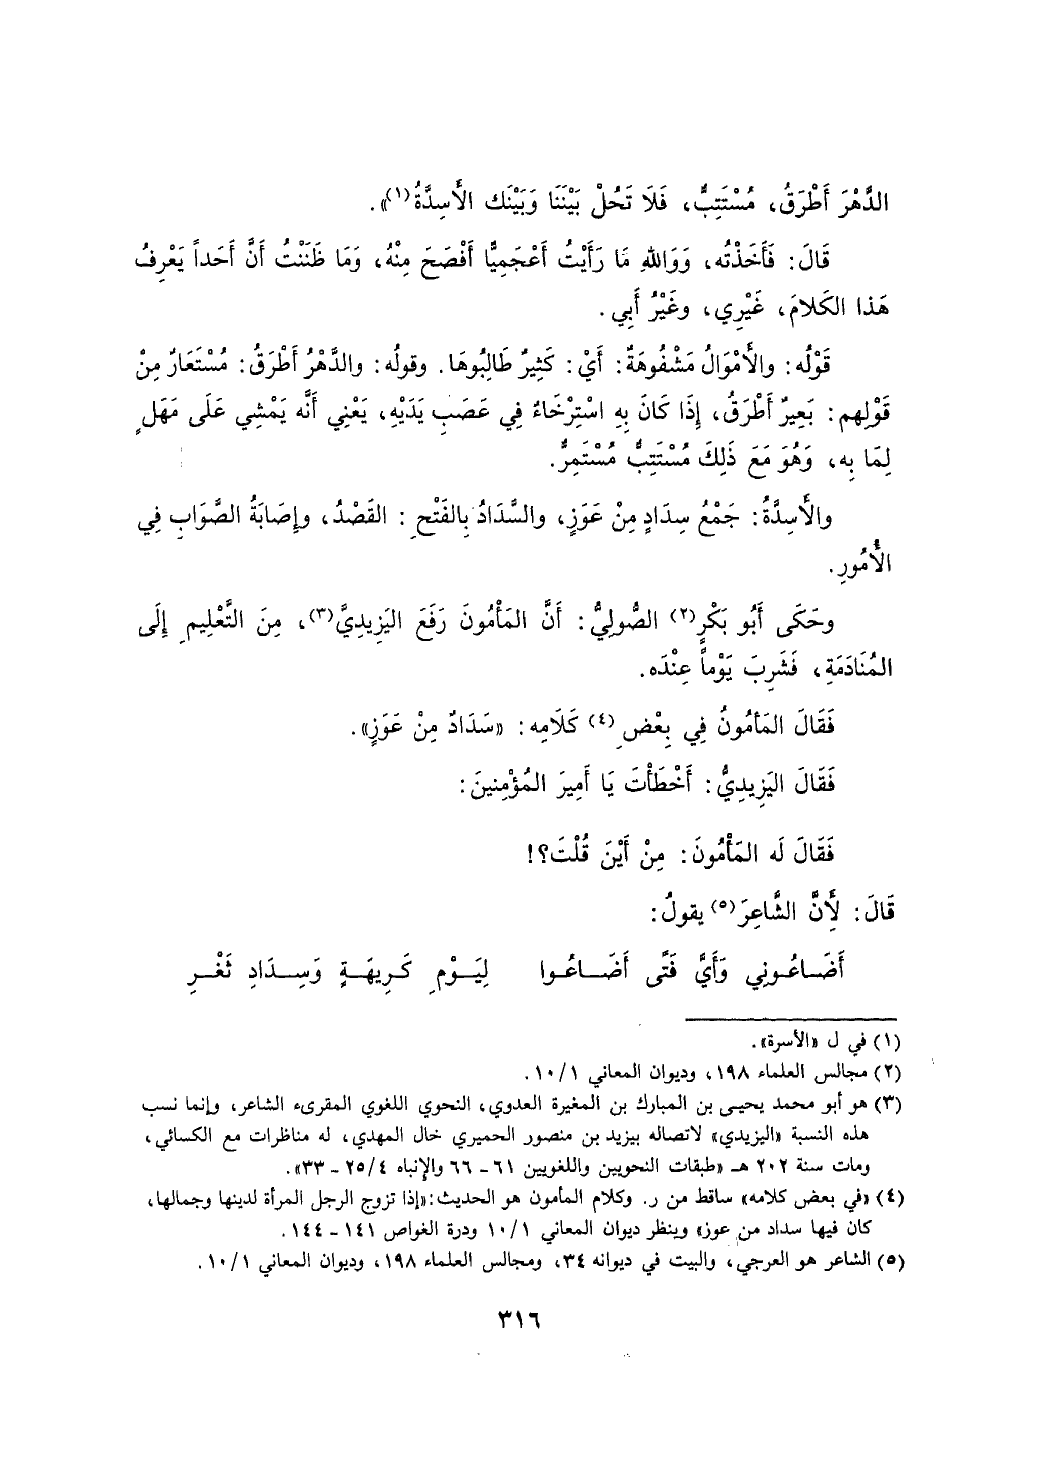 الدَّهْرَ أَطْرَقُ، مُسْتَتِبٌّ، فَلَا تَحُلْ بَيْنَنَا وَبَيْنَك الأَسِدَّةُ(١)».
قَالَ: فَأَخَذْتُه، وَوَاللهِ مَا رَأَيْتُ أَعْجَمِيًّا أَفْصَحَ مِنْهُ، وَمَا ظَنَنْتُ أَنَّ أَحَداً يَعْرِفُ
هَذا الكَلامَ، غَيْرِي، وغَيْرُ أَبِي.
قَوْلُه: والأَمْوَالُ مَشْفُوهَةٌ: أَيْ: كَثِيرٌ طَالِبُوهَا. وقولُه: والدَّهْرُ أَطْرَقُ: مُسْتَعَارٌ مِنْ
قَوْلِهم: بَعِيرٌ أَطْرَقُ، إِذَا كَانَ بِهِ اسْتِرْخَاءٌ فِي عَصَبِ يَدَيْهِ، يَعْنِي أَنَّه يَمْشِي عَلَى مَهَلٍ
لِمَا بِه، وَهُوَ مَعَ ذَلِكَ مُسْتَتِبٌّ مُسْتَمِرٌّ.
والأَسِدَّةُ: جَمْعُ سِدَادٍ مِنْ عَوَزٍ، والسَّدَادُ بِالفَتْحِ: القَصْدُ، وإِصَابَةُ الصَّوَابِ فِي
الأُمُورِ.
وحَكَى أَبُو بَكْرٍ(٢) الصُّولِيُّ: أَنَّ المَأْمُونَ رَفَعَ اليَزِيدِيَّ(٣)، مِنَ التَّعْلِيمِ إِلَى
المُنَادَمَةِ، فَشَرِبَ يَوْماً عِنْدَه.
فَقَالَ المَأمُونُ فِي بِعْضِ(٤) كَلَامِه: «سَدَادٌ مِنْ عَوَزٍ».
فَقَالَ اليَزِيدِيُّ: أَخْطَأْتَ يَا أَمِيرَ المُؤْمِنينَ:
فَقَالَ لَه المَأْمُونَ: مِنْ أَيْنَ قُلْتَ؟!
قَالَ: لِأَنَّ الشَّاعِرَ(٥) يقولُ:
أَضَـاعُـونِي وَأَيَّ فَتًى أَضَـاعُـوا لِيَـوْمِ كَـرِيهَـةٍ وَسِـدَادِ ثَغْـرِ
(١) في ل «الأسرة».
(٢) مجالس العلماء ١٩٨، وديوان المعاني ١٠/١.
(٣) هو أبو محمد يحيـى بن المبارك بن المغيرة العدوي، النحوي اللغوي المقرىء الشاعر، وإنما نسب
هذه النسبة «اليزيدي» لاتصاله بيزيد بن منصور الحميري خال المهدي، له مناظرات مع الكسائي،
ومات سنة ٢٠٢ هـ «طبقات النحويين واللغويين ٦١ - ٦٦ والإنباه ٢٥/٤ - ٣٣».
(٤) «في بعض كلامه» ساقط من ر. وكلام المأمون هو الحديث: «إذا تزوج الرجل المرأة لدينها وجمالها،
كان فيها سداد من عوز» وينظر ديوان المعاني ١٠/١ ودرة الغواص ١٤١ - ١٤٤.
(٥) الشاعر هو العرجي، والبيت في ديوانه ٣٤، ومجالس العلماء ١٩٨، وديوان المعاني ١٠/١.
٣١٦